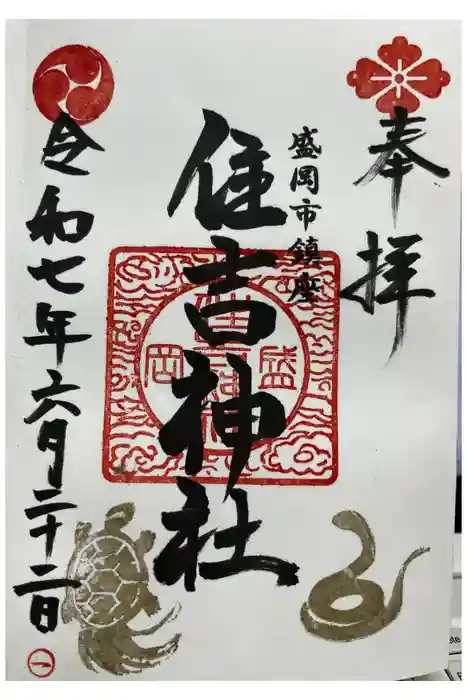 奉拝
盛岡市鎮座
住吉神社
盛
岡
令和七年六月二十二日
一